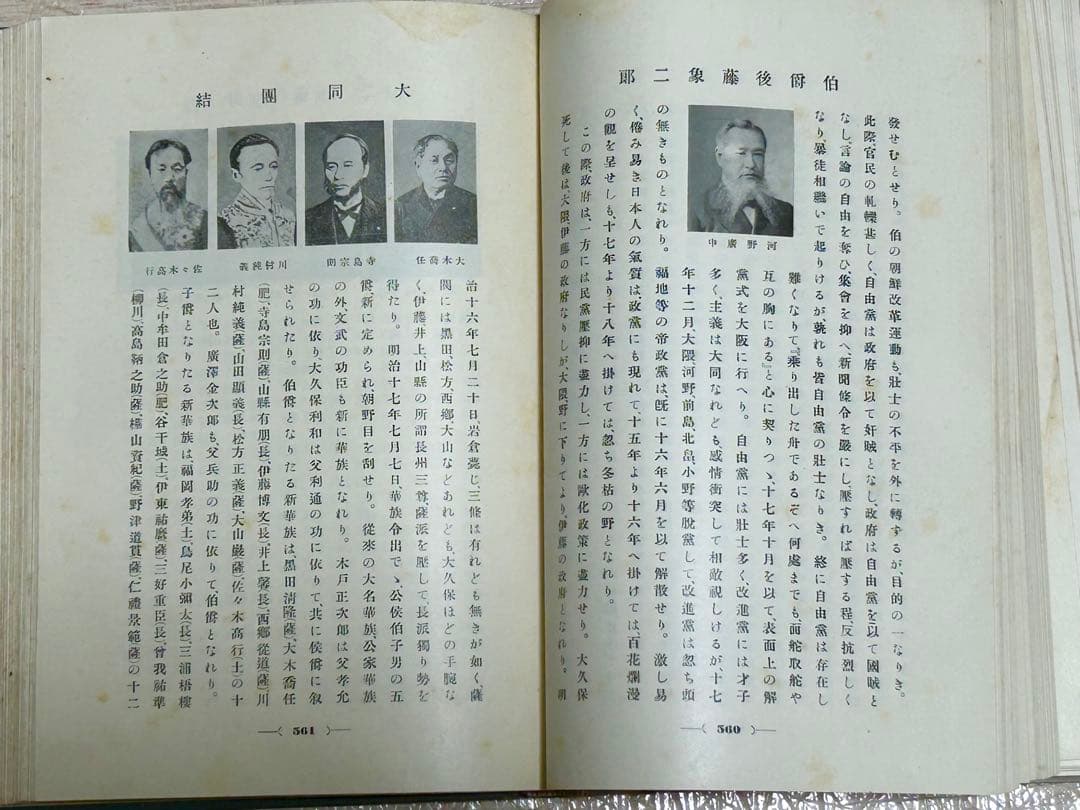 伯爵後藤象二郎
發せむとせり。伯の朝鮮改革運動も、壯士の不平を外に轉ずるが、目的の一なりき。
此際、官民の軋轢甚しく、自由黨は政府を以て奸賊となし、政府は自由黨を以て國賊と
なし、言論の自由を奪ひ、集會を抑へ、新聞條令を嚴にし、壓すれば壓する程、反抗烈しく
なり暴徒相繼いで起りけるが、孰れも皆自由黨の壯士なりき。終に自由黨は存在し
難くなりて『乘り出した舟であるぞへ何處までも、面舵取舵や
互の胸にある』と心に契りつゝ、十七年十月を以て表面上の解
黨式を大阪に行へり。自由黨には壯士多く、改進黨には才子
多く、主義は大同なれども、感情衝突して相敵視しけるが、十七
年十二月、大隈河野、前島北畠、小野等脫黨して、改進黨は忽ち頭
河野廣中
の無きものとなれり。福地等の帝政黨は、既に十六年六月を以て解散せり。激し易
く、倦み易き日本人の氣質は、政黨にも現れて、十五年より十六年へ掛けては、百花爛漫
の觀を呈せしも、十七年より十八年へ掛けては、忽ち冬枯の野となれり。
この際、政府は、一方には民黨壓抑に盡力し、一方には歐化政策に盡力せり。大久保
死して後は、大隈、伊藤の政府なりしが、大隈、野に下りてより、伊藤の政府となれり。明
560
大同團結
大木喬任
寺島宗則
川村純義
佐々木高行
治十六年七月二十日、岩倉薨じ、三條は有れども無きが如く、薩
閥には黑田、松方、西鄕大山などあれども、大久保ほどの手腕な
く、伊藤井上、山縣の所謂長州三尊薩派を壓して、長派獨り勢を
得たり。明治十七年七月七日、華族令出でゝ、公侯伯子男の五
爵新に定められ、朝野目を刮せり。從來の大名華族、公家華族
の外文武の功臣も新に華族となれり。木戸正次郎は父孝允
の功に依り、大久保利和は父利通の功に依りて、共に侯爵に叙
せられたり。伯爵となりたる新華族は、黑田清隆(薩)、大木喬任
(肥)、寺島宗則(薩)、山縣有朋(長)、伊藤博文(長)、井上馨(長)、西鄕從道(薩)、川
村純義(薩)、山田顯義(長)、松方正義(薩)、大山巖(薩)、佐々木高行(土)の十
二人也。廣澤金次郎も、父兵助の功に依りて、伯爵となれり。
子爵となりたる新華族は、福岡孝弟(土)、鳥尾小彌太(長)、三浦梧樓
(長)、中牟田倉之助(肥)、谷干城(土)、伊東祐麿(薩)、三好重臣(長)、曾我祐準
(柳川)、高島鞆之助(薩)、樺山資紀(薩)、野津道貫(薩)、仁禮景範(薩)の十二
561